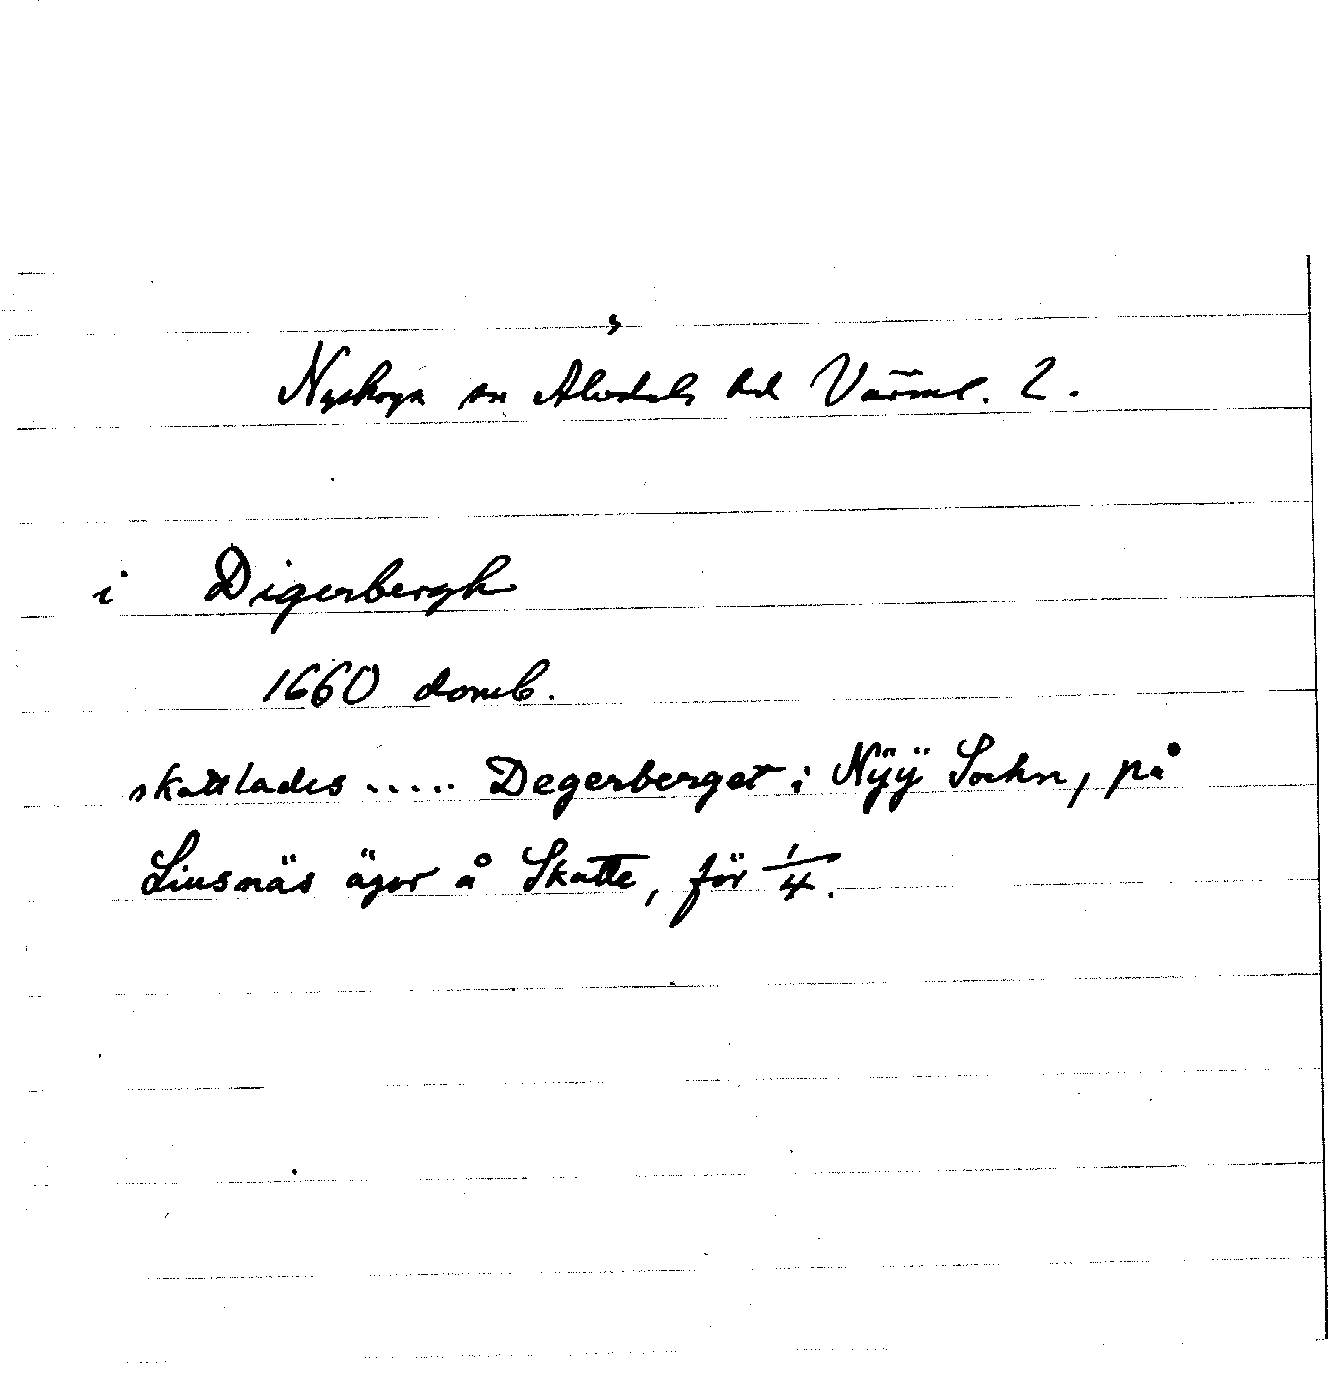 Nyskoga sn Älvdals hd Värml. L.
i Digerbergh
1660 domb.
skattlades ..... Degerberget i Nÿÿ Sockn, på
Liusnäs ägor å Skatte, för 1/4.